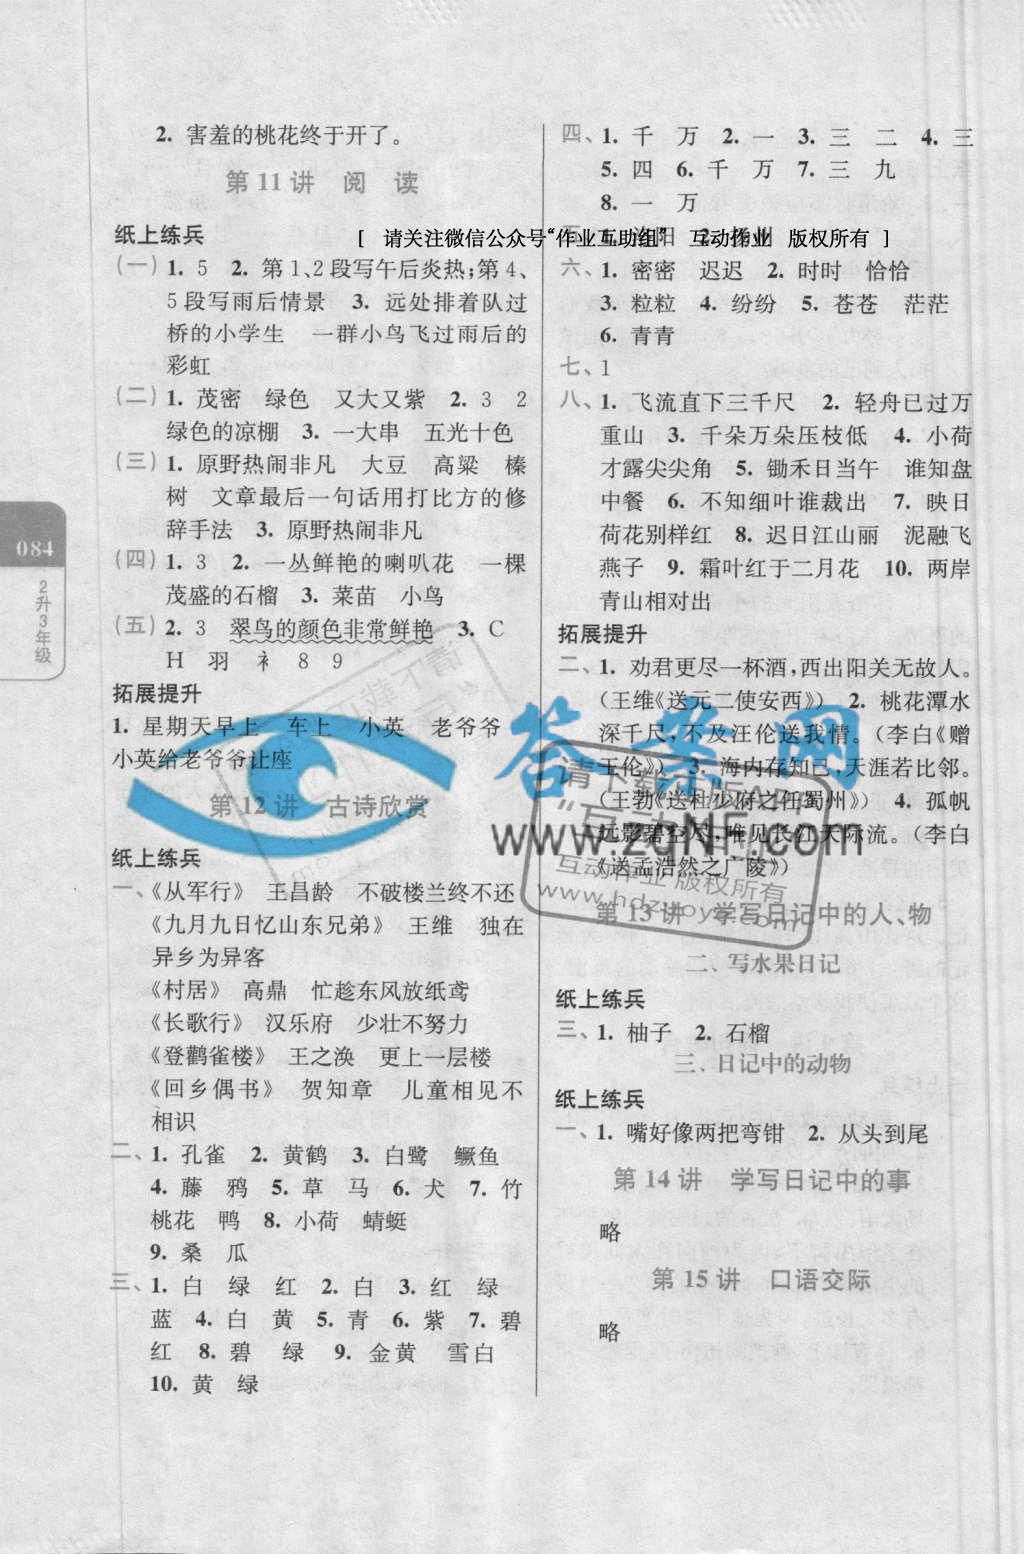 2. 害羞的桃花终于开了。
第 11 讲 阅 读
纸上练兵
(一) 1. 5 2. 第 1、2 段写午后炎热;第 4、
5 段写雨后情景 3. 远处排着队过
桥的小学生 一群小鸟飞过雨后的
彩虹
(二) 1. 茂密 绿色 又大又紫 2. 3 2
绿色的凉棚 3. 一大串 五光十色
(三) 1. 原野热闹非凡 大豆 高粱 榛
树 文章最后一句话用打比方的修
辞手法 3. 原野热闹非凡
(四) 1. 3 2. 一丛鲜艳的喇叭花 一棵
茂盛的石榴 3. 菜苗 小鸟
(五) 2. 3 翠鸟的颜色非常鲜艳 3. C
H 羽 衤 8 9
拓展提升
1. 星期天早上 车上 小英 老爷爷
小英给老爷爷让座
第 12 讲 古诗欣赏
纸上练兵
一、《从军行》 王昌龄 不破楼兰终不还
《九月九日忆山东兄弟》 王维 独在
异乡为异客
《村居》 高鼎 忙趁东风放纸鸢
《长歌行》 汉乐府 少壮不努力
《登鹳雀楼》 王之涣 更上一层楼
《回乡偶书》 贺知章 儿童相见不
相识
二、1. 孔雀 2. 黄鹤 3. 白鹭 鳜鱼
4. 藤 鸦 5. 草 马 6. 犬 7. 竹
桃花 鸭 8. 小荷 蜻蜓
9. 桑 瓜
三、1. 白 绿 红 2. 白 3. 红 绿
蓝 4. 白 黄 5. 青 6. 紫 7. 碧
红 8. 碧 绿 9. 金黄 雪白
10. 黄 绿
四、1. 千 万 2. 一 3. 三 二 4. 三
5. 四 6. 千 万 7. 三 九
8. 一 万
[ 请关注微信公众号“作业互助组” 互动作业 版权所有 ]
六、1. 密密 迟迟 2. 时时 恰恰
3. 粒粒 4. 纷纷 5. 苍苍 茫茫
6. 青青
七、1
八、1. 飞流直下三千尺 2. 轻舟已过万
重山 3. 千朵万朵压枝低 4. 小荷
才露尖尖角 5. 锄禾日当午 谁知盘
中餐 6. 不知细叶谁裁出 7. 映日
荷花别样红 8. 迟日江山丽 泥融飞
燕子 9. 霜叶红于二月花 10. 两岸
青山相对出
拓展提升
二、1. 劝君更尽一杯酒,西出阳关无故人。
(王维《送元二使安西》) 2. 桃花潭水
深千尺,不及汪伦送我情。(李白《赠
汪伦》) 3. 海内存知己,天涯若比邻。
(王勃《送杜少府之任蜀州》) 4. 孤帆
远影碧空尽,唯见长江天际流。(李白
《送孟浩然之广陵》)
第 13 讲 学写日记中的人、物
二、写水果日记
纸上练兵
三、1. 柚子 2. 石榴
三、日记中的动物
纸上练兵
一、1. 嘴好像两把弯钳 2. 从头到尾
第 14 讲 学写日记中的事
略
第 15 讲 口语交际
略
084
2升3年级
答案网
www.zqnf.com
请下载正版APP
“互动作业”
互动作业 版权所有